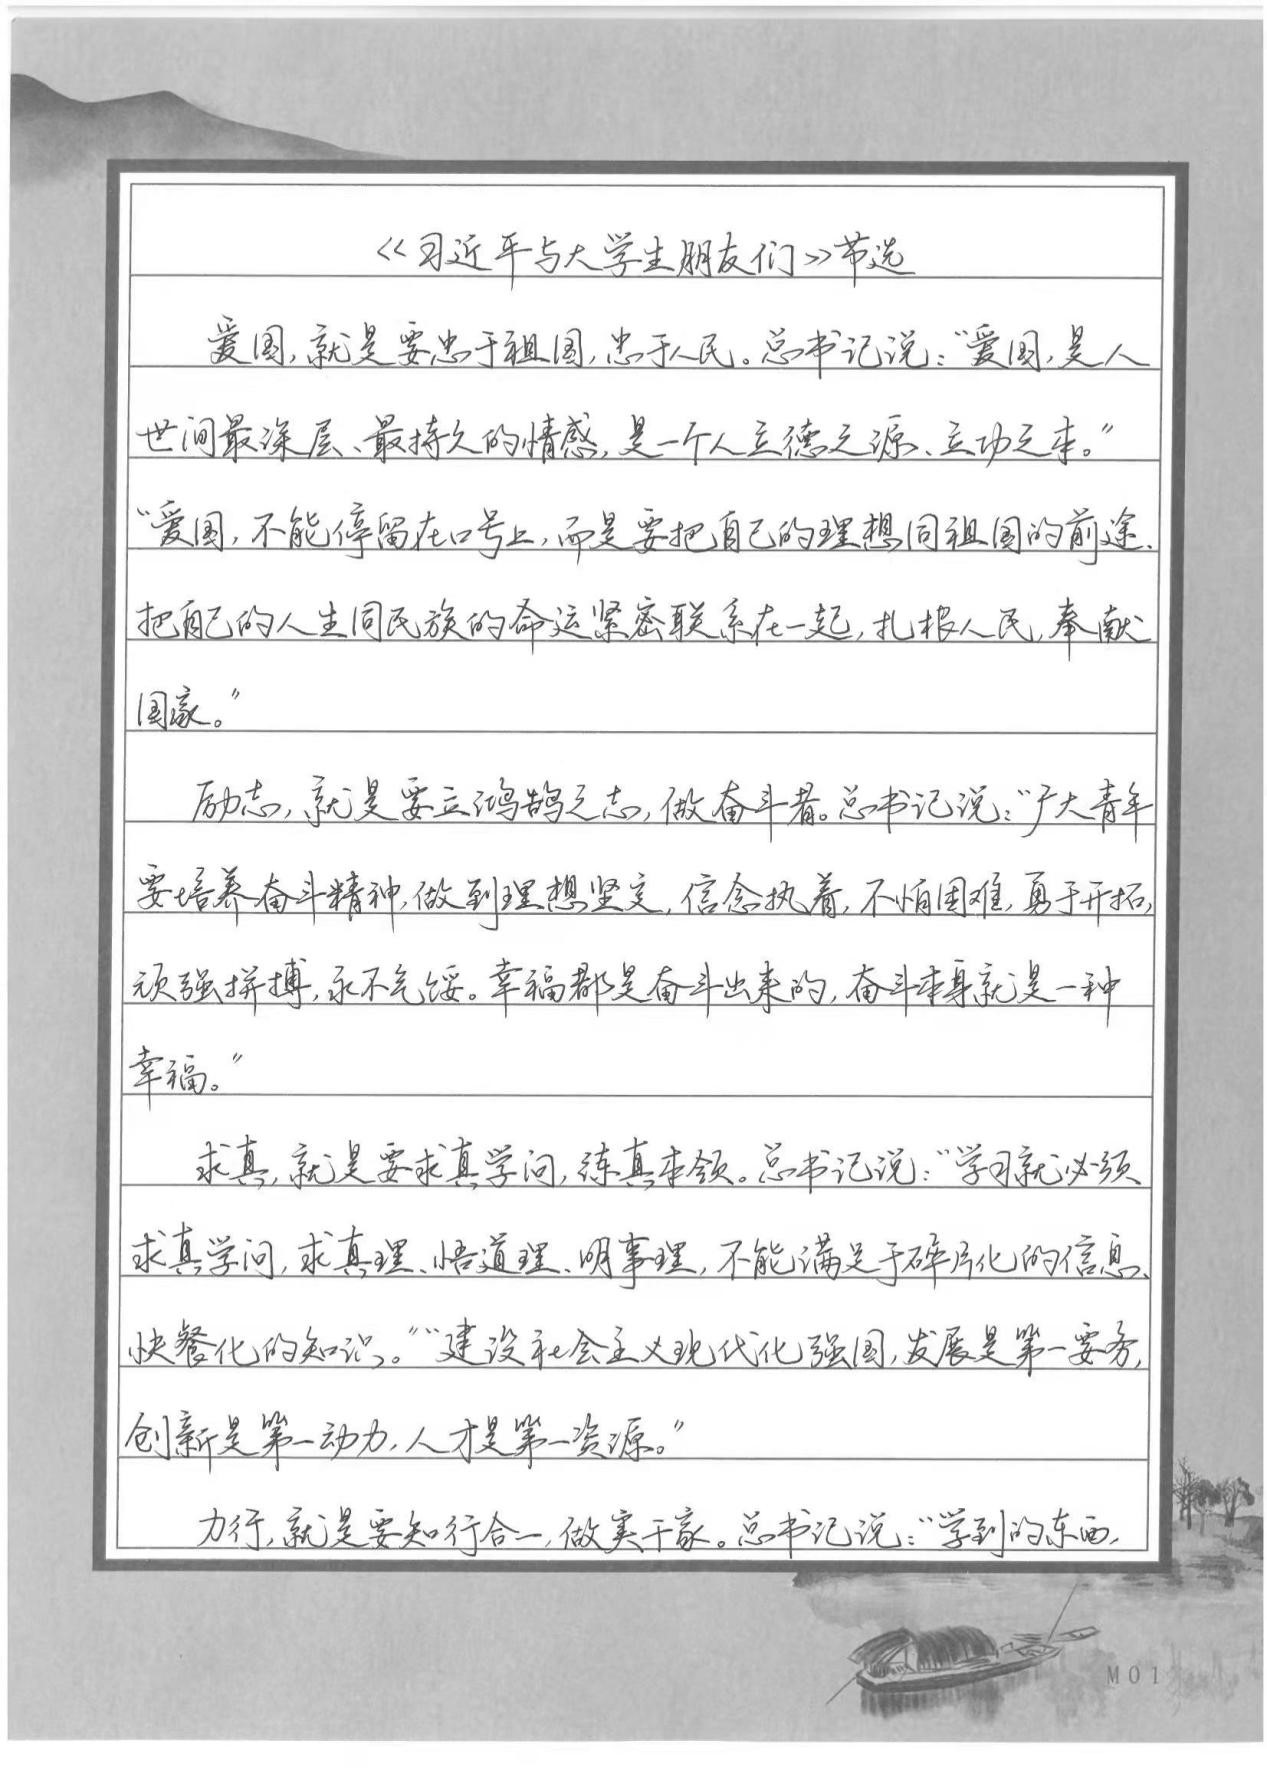 《习近平与大学生朋友们》节选
爱国，就是要忠于祖国，忠于人民。总书记说：“爱国，是人
世间最深层、最持久的情感，是一个人立德之源、立功之本。”
“爱国，不能停留在口号上，而是要把自己的理想同祖国的前途、
把自己的人生同民族的命运紧密联系在一起，扎根人民，奉献
国家。”
励志，就是要立鸿鹄之志，做奋斗者。总书记说：“广大青年
要培养奋斗精神，做到理想坚定，信念执着，不怕困难，勇于开拓，
顽强拼搏，永不气馁。幸福都是奋斗出来的，奋斗本身就是一种
幸福。”
求真，就是要求真学问，练真本领。总书记说：“学习就必须
求真学问，求真理、悟道理、明事理，不能满足于碎片化的信息、
快餐化的知识。”“建设社会主义现代化强国，发展是第一要务，
创新是第一动力，人才是第一资源。”
力行，就是要知行合一，做实干家。总书记说：“学到的东西，
M01